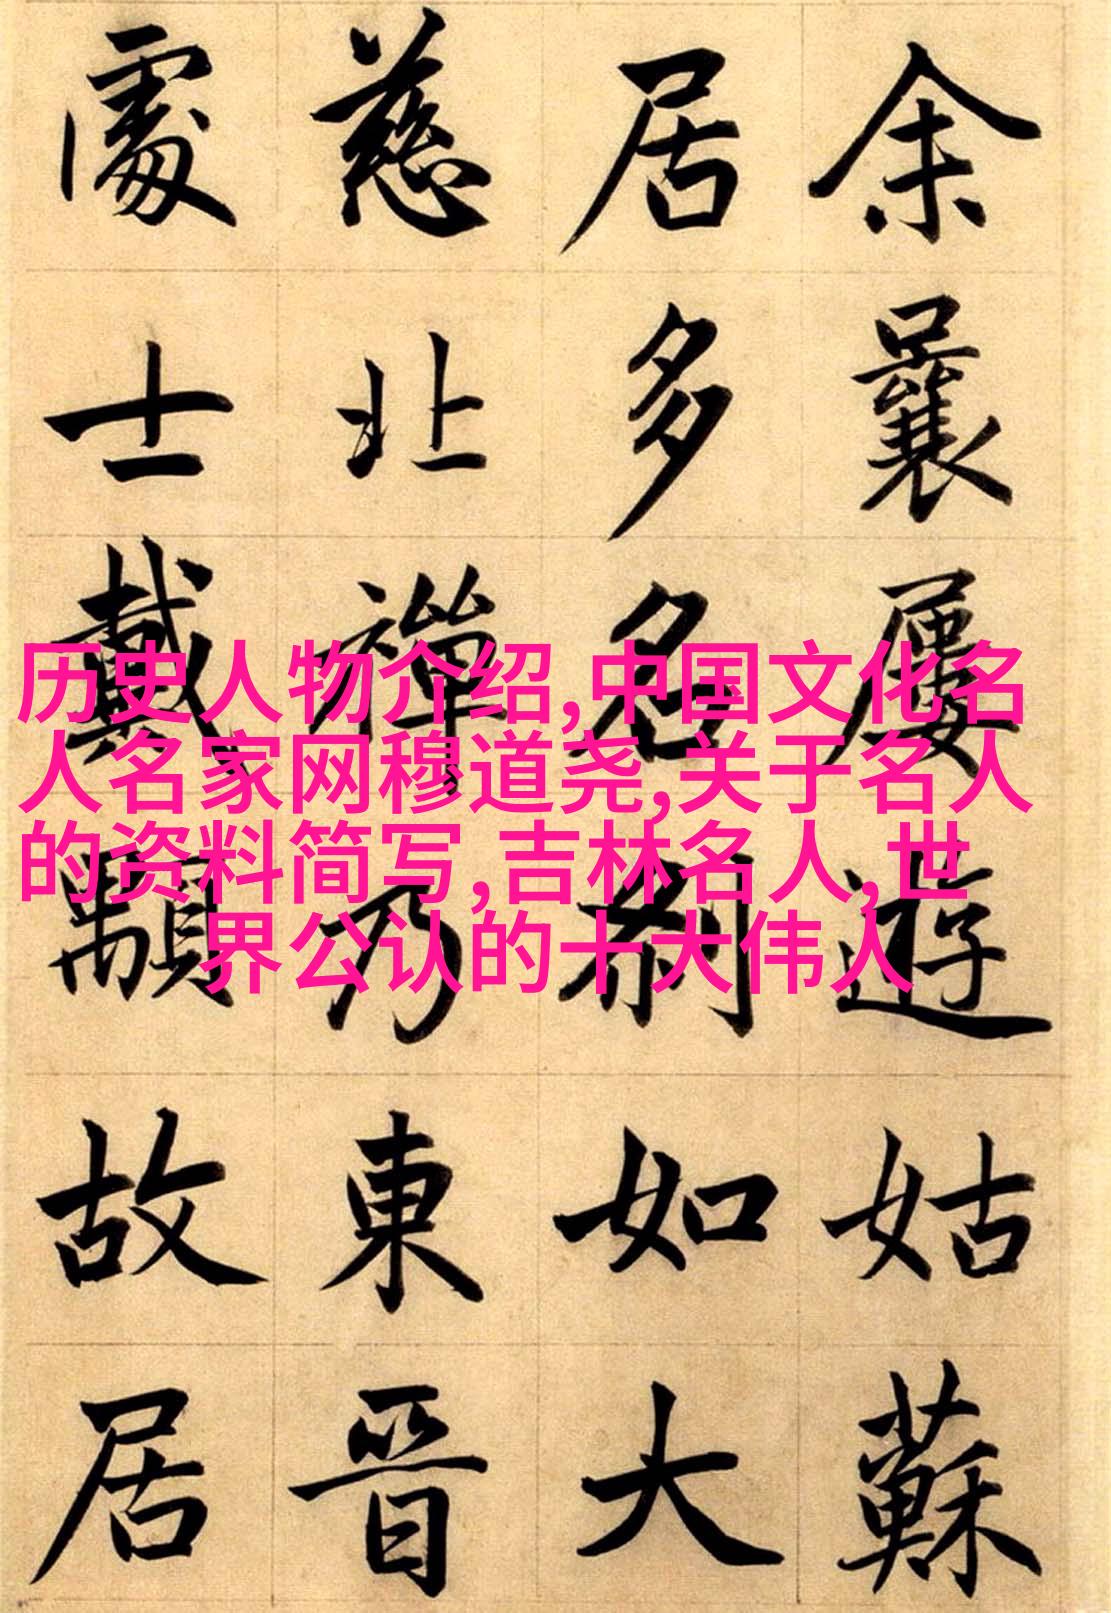 余曩屢遊姑蘇
居多名刹如大
慈北禪乃東晉
處士戴顒故居
历史人物介绍,中国文化名
人名家网穆道尧,关于名人
的资料简写,吉林名人,世
界公认的十大伟人